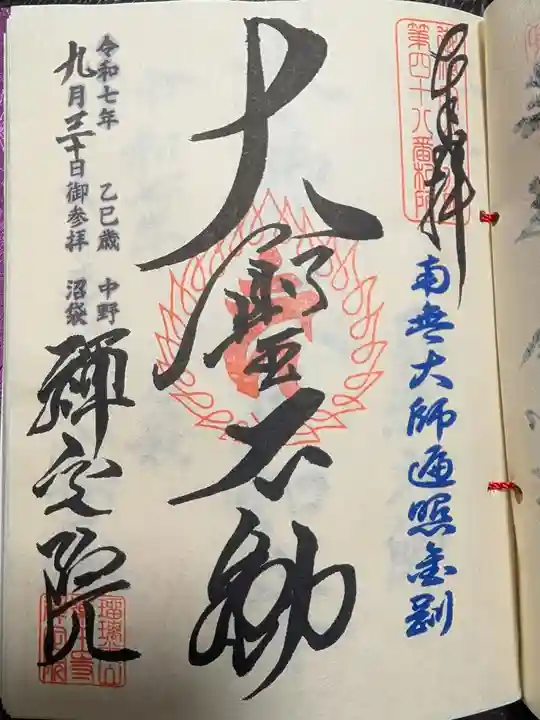 奉拝
第四十八番札所
南無大師遍照金剛
大聖不動
令和七年 乙巳歳 中野
九月三十日御参拝 沼袋
禅定院
瑠璃光山